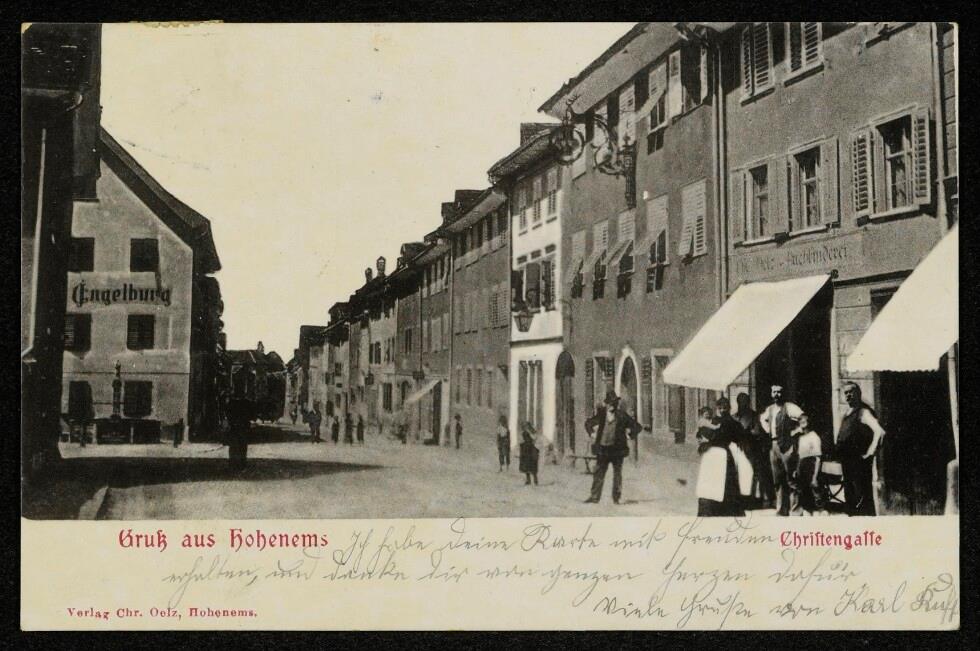 Engelburg
Chr. Oelz Buchbinderei
Gruß aus Hohenems
Christengasse
Ich habe deine Karte mit freuden
erhalten, und danke dir von ganzen Herzen dafür
Viele Grüße von Karl
Verlag Chr. Oelz, Hohenems.